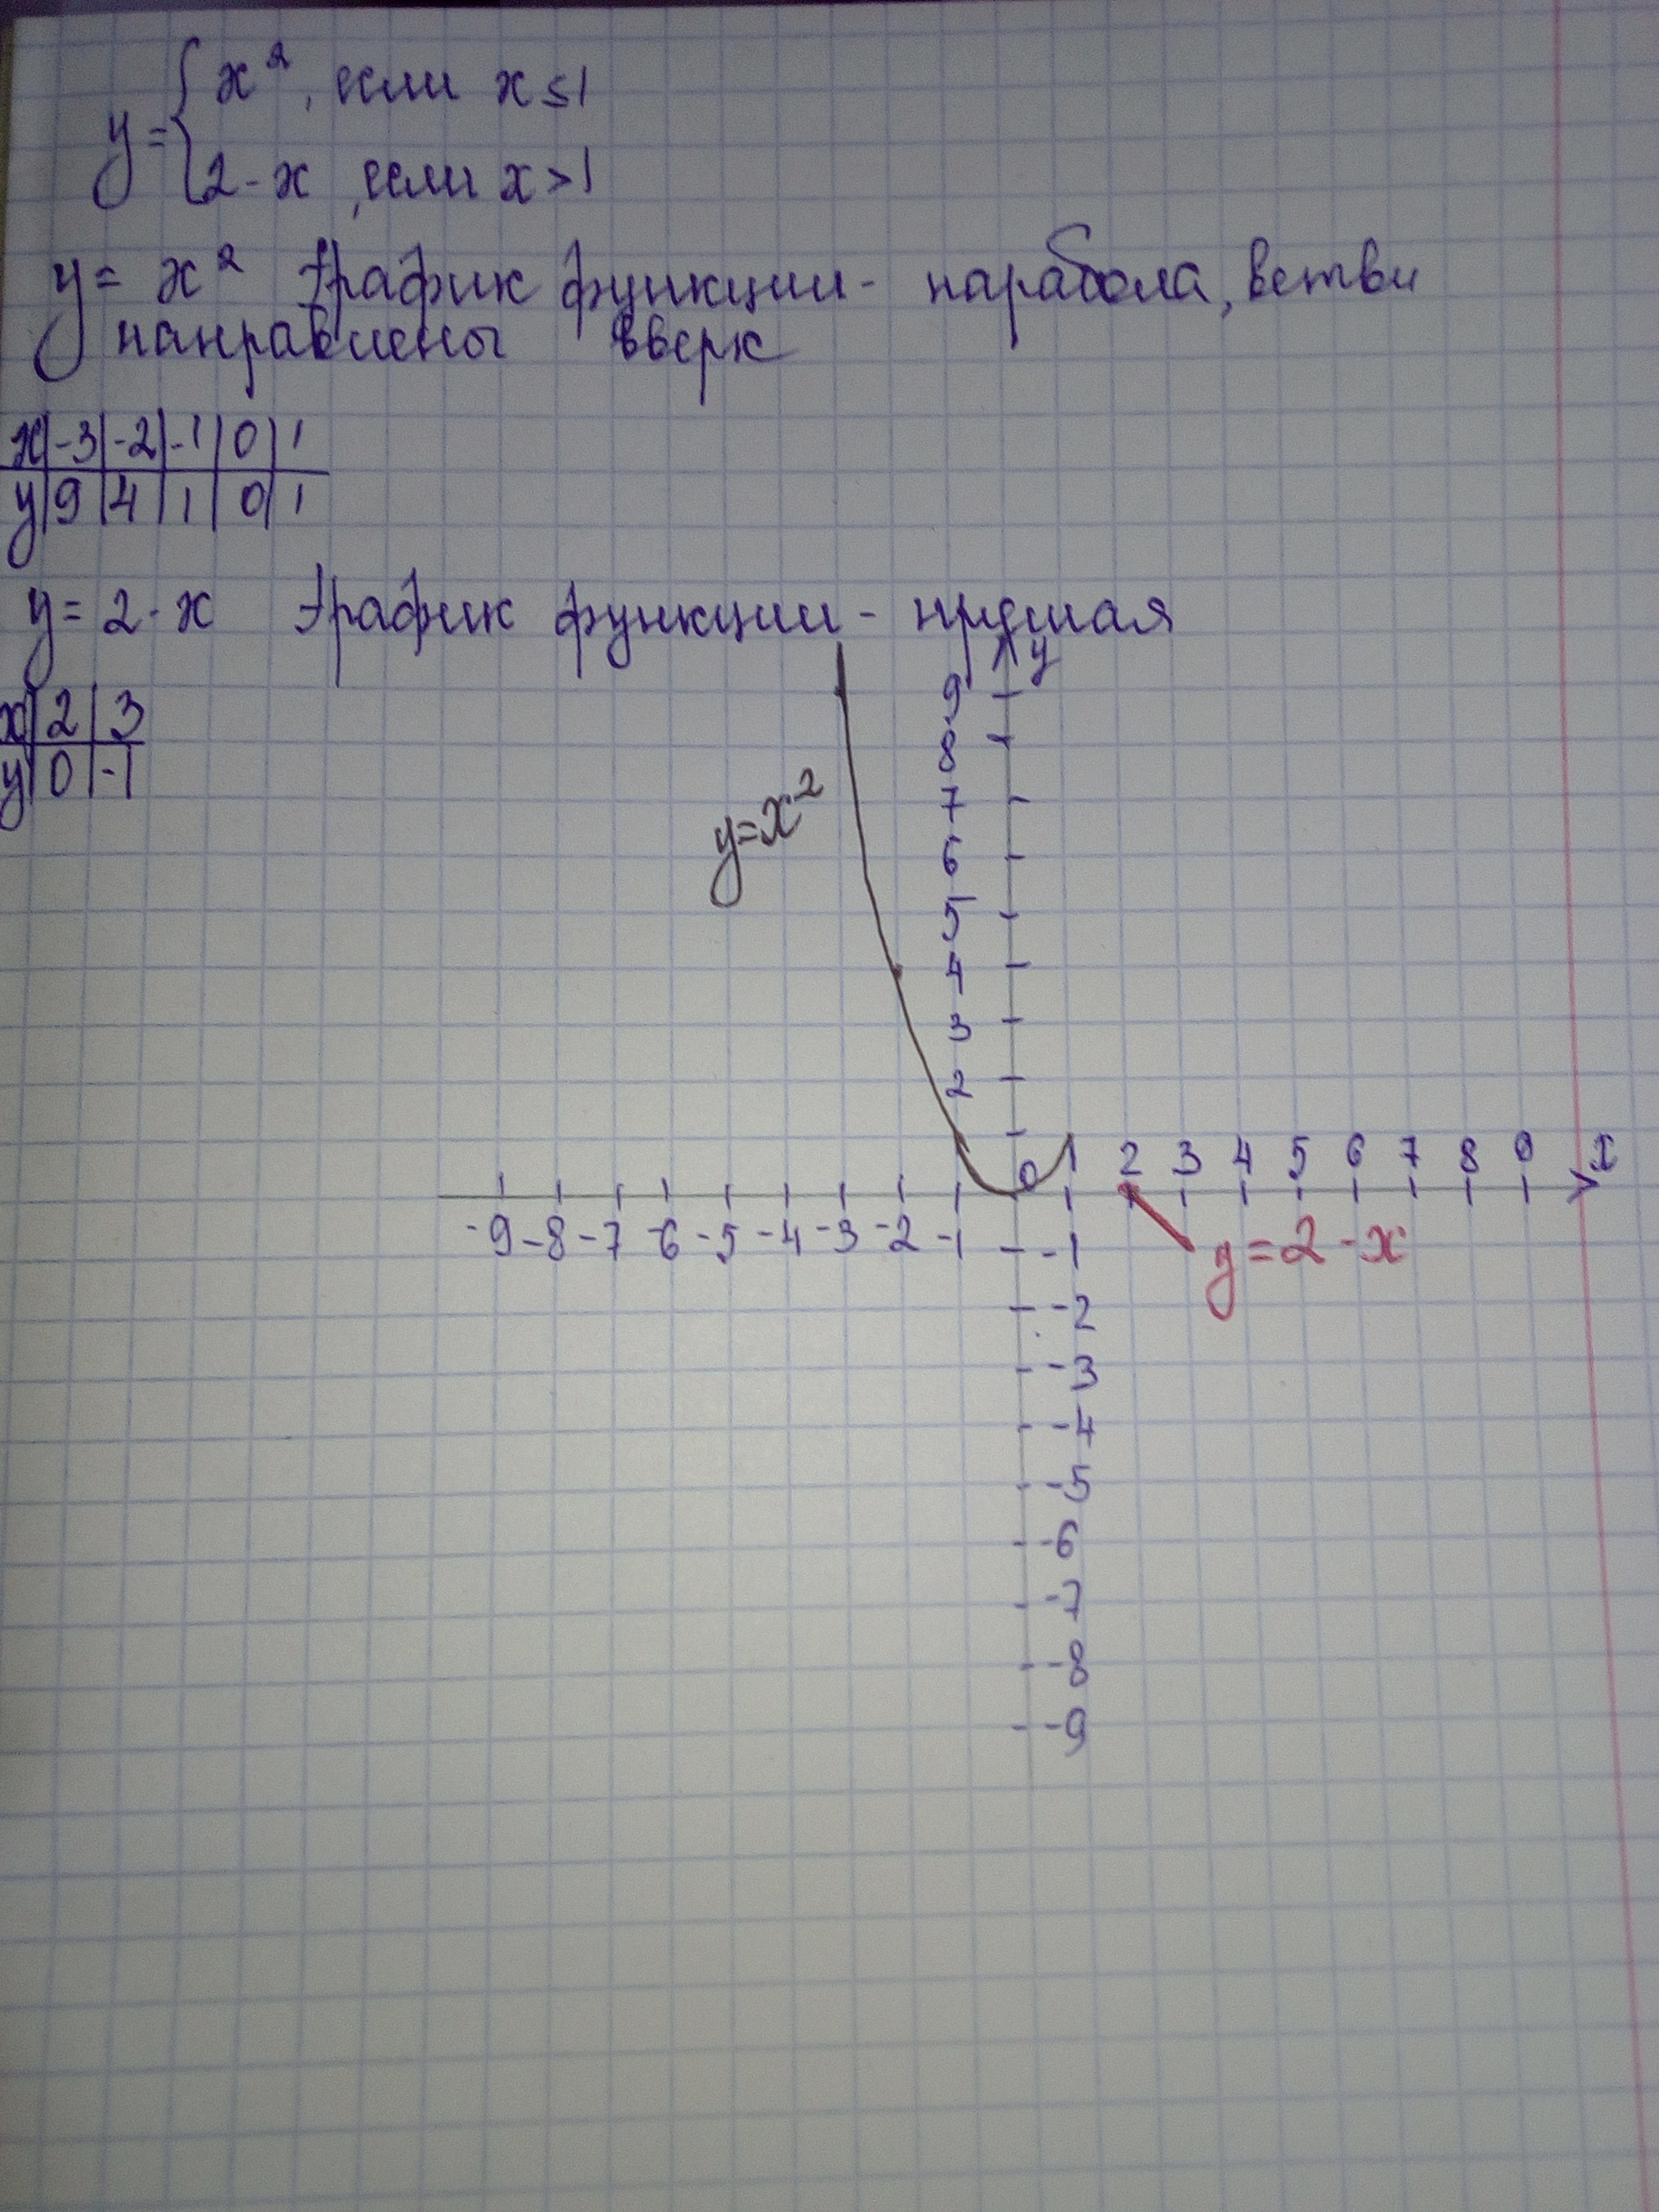 y = { x², если x ≤ 1
2 - x, если x > 1
y = x² График функции - парабола, ветви
направлены вверх
x | -3 | -2 | -1 | 0 | 1
y | 9 | 4 | 1 | 0 | 1
y = 2 - x График функции - прямая
x | 2 | 3
y | 0 | -1
y
9
8
7
6
5
4
3
2
y = x²
0 1 2 3 4 5 6 7 8 9 x
-9 -8 -7 -6 -5 -4 -3 -2 -1
-1
y = 2 - x
-2
-3
-4
-5
-6
-7
-8
-9